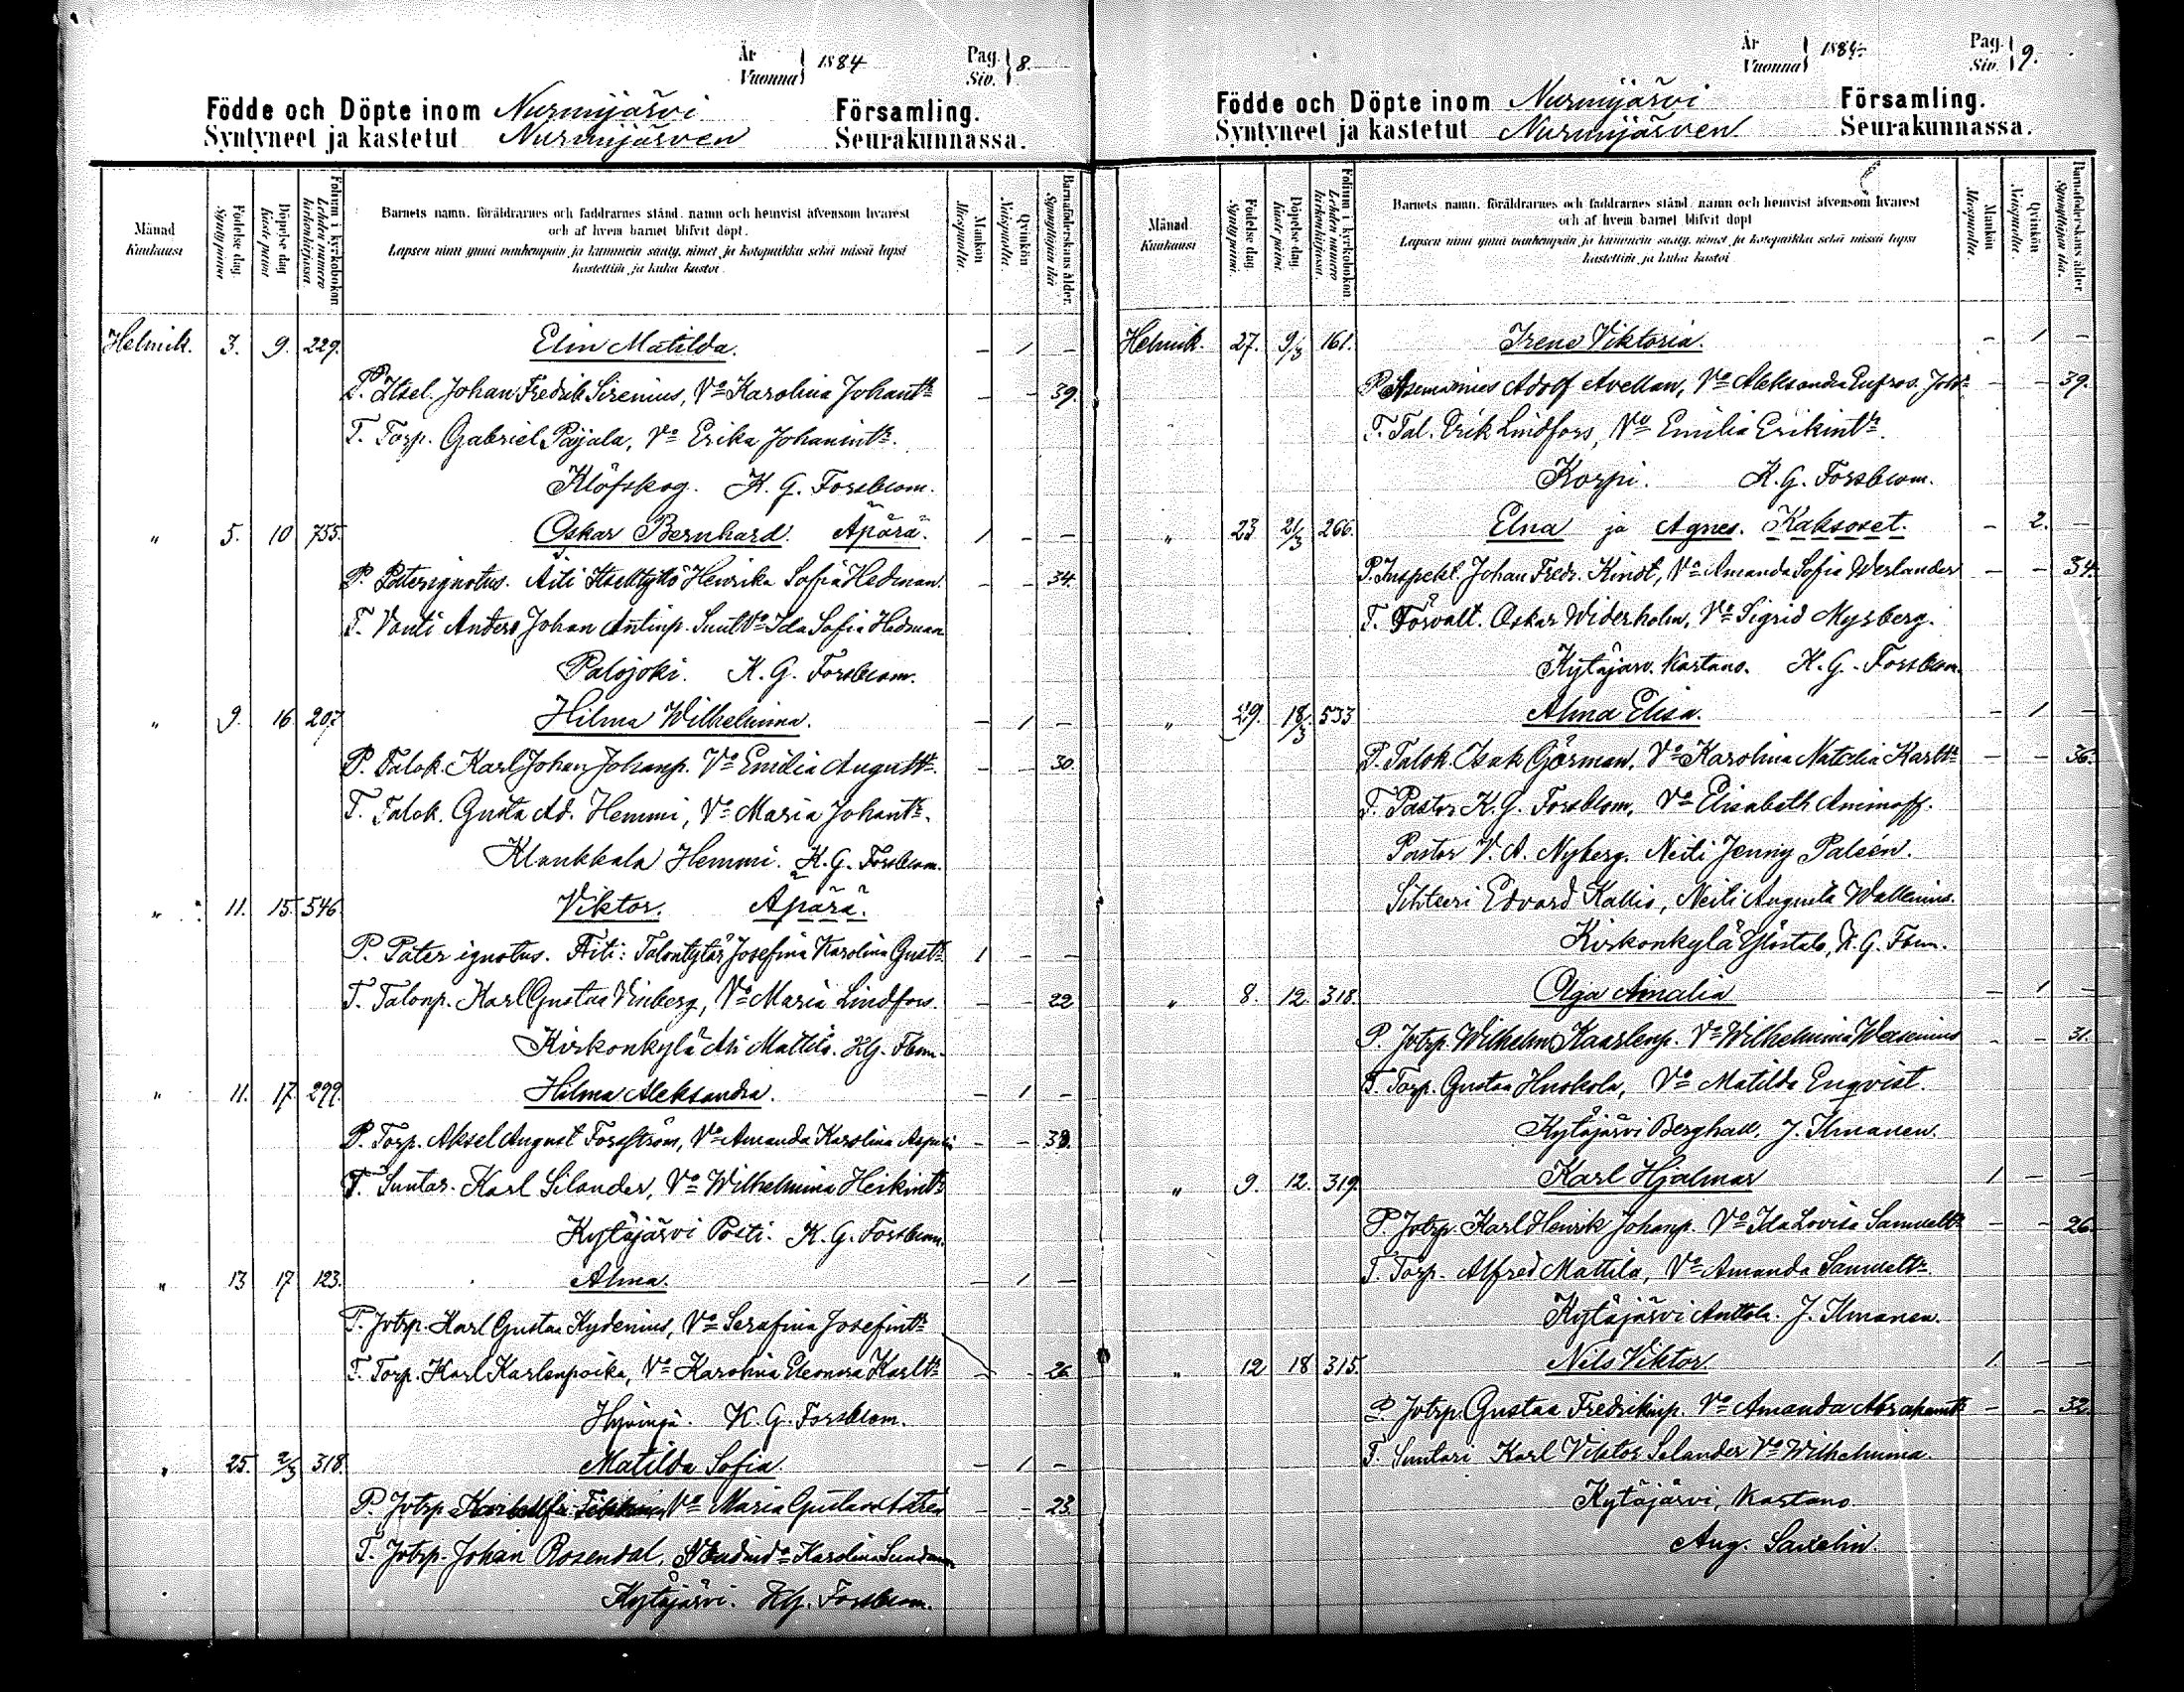 År Vuonna 1884 Pag. Siv. 8.
Födde och Döpte inom Nurmijärvi Församling.
Syntyneet ja kastetut Nurmijärven Seurakunnassa.
Månad Kuukausi
Födelse dag. Synty päivä
Döpelse dag Kaste päivä
Folium i kyrkoboken Lehden numero kirkonkirjassa
Barnets namn, föräldrarnes och faddrarnes stånd, namn och hemvist äfvensom hvarest
och af hvem barnet blifvit döpt.
Lapsen nimi ynnä vanhempain ja kummein sääty, nimet ja kotopaikka sekä missä lapsi
kastettiin ja kuka kastoi.
Mankön Miespuolia.
Qvinkön Naispuolia.
Barnaföderskans ålder. Synnyttäjän ikä
Helmik. 3. 9. 229. Elin Matilda. – 1 –
P. Itsel. Johan Fredrik Sirenius, Vo Karolina Johantr – – 39.
T. Torp. Gabriel Pajala, Vo Erika Johanintr.
Klöfskog. K. G. Forsblom.
" 5. 10 755. Oskar Bernhard. Äpärä. 1 – –
P. Pater ignotus. Äiti Itsell.tyttö Henrika Sofia Hedman. – – 34.
T. Vouti Anders Johan Antinp. Vo Ida Sofia Hedman
Palojoki. K. G. Forsblom.
" 9. 16 207 Hilma Wilhelmina. – 1 –
P. Talok. Karl Johan Johanp. Vo Emilia Augusttr. – – 30.
T. Talok. Gusta Ad. Hemmi, Vo Maria Johantr.
Klaukkala Hemmi. K. G. Forsblom.
" 11. 15. 546 Viktor. Äpärä.
P. Pater ignotus. Äiti: Talontytär Josefina Karolina Gusttr 1 – –
T. Talonp. Karl Gustaa Vinberg, Vo Maria Lindfors. – – 22
Kirkonkylä Ali Mattila. KG. Fbm.
" 11. 17. 299. Hilma Aleksandra. – 1 –
P. Torp. Aksel August Forsström, Vo Amanda Karolina – – 38.
T. Suntar. Karl Silander, Vo Wilhelmina Heikintr
Kytäjärvi Posti. K. G. Forsblom.
" 13 17 123. Alma. – 1 –
P. Jotrp. Karl Gustaa Kydenius, Vo Serafina Josefintr
T. Torp. Karl Karlenpoika, Vo Karolina Eleonora Karltr – – 26
Hyvinge. K. G. Forsblom.
" 25. 2/3 318. Matilda Sofia. – 1 –
P. Jotrp. Vo Maria – – 23.
T. Jotrp. Johan Rosendal, Karolina
Kytäjärvi. KG. Forsblom.
År Vuonna 1884 Pag. Siv. 9.
Födde och Döpte inom Nurmijärvi Församling.
Syntyneet ja kastetut Nurmijärven Seurakunnassa.
Månad Kuukausi
Födelse dag. Synty päivä.
Döpelse dag. Kaste päivä.
Folium i kyrkoboken. Lehden numero kirkonkirjassa.
Barnets namn, föräldrarnes och faddrarnes stånd, namn och hemvist äfvensom hvarest
och af hvem barnet blifvit döpt
Lapsen nimi ynnä vanhempain ja kummein sääty, nimet ja kotopaikka sekä missä lapsi
kastettiin ja kuka kastoi
Mankön Miespuolia.
Qvinkön Naispuolia.
Barnaföderskans ålder. Synnyttäjän ikä.
Helmik. 27. 9/3 161. Irene Viktoria. – 1 –
P. Adolf Avellan, Vo Aleksandra Eufros. – – 39.
T. Tal. Erik Lindfors, Vo Emilia Erikintr.
Korpi. K. G. Forsblom.
" 23 21/3 266. Elna ja Agnes. Kaksoset. – 2. –
P. Inspekt. Johan Fredr. Kindt, Vo Amanda Sofia Weslander – – 34.
T. Förvalt. Oskar Widerholm, Vo Sigrid Myrberg.
Kytäjärv. Kartano. K. G. Forsblom.
" 29. 18/3 533 Alma Elisa. – 1 –
P. Talok. Isak Görman. Vo Karolina Natalia Karltr – – 36.
T. Pastor K. G. Forsblom, Vo Elisabeth Aminoff.
Pastor V. A. Nyberg. Neiti Jenny Paleén.
Sihteeri Edvard Kallio, Neiti Augusta Wallenius.
Kirkonkylä K. G. Fbm.
" 8. 12. 318. Olga Amalia – 1 –
P. Jotrp. Wilhelm Kaarlenp. Vo Wilhelmina Wesenius – – 31.
T. Torp. Gustaa Huokola, Vo Matilda Enqvist.
Kytäjärvi Berghall, J. Ilmanen.
" 9. 12. 319. Karl Hjalmar 1 – –
P. Jotrp. Karl Henrik Johanp. Vo Ida Lovisa Samueltr – – 26.
T. Torp. Alfred Mattila, Vo Amanda Samueltr.
Kytäjärvi Anttola. J. Ilmanen.
" 12 18 315. Nils Viktor 1. – –
P. Jotrp. Gustaa Fredrikinp. Vo Amanda Abrahamtr – – 32.
T. Suntari Karl Viktor Selander Vo Wilhelmina.
Kytäjärvi, Kartano.
Aug. Saxelin.